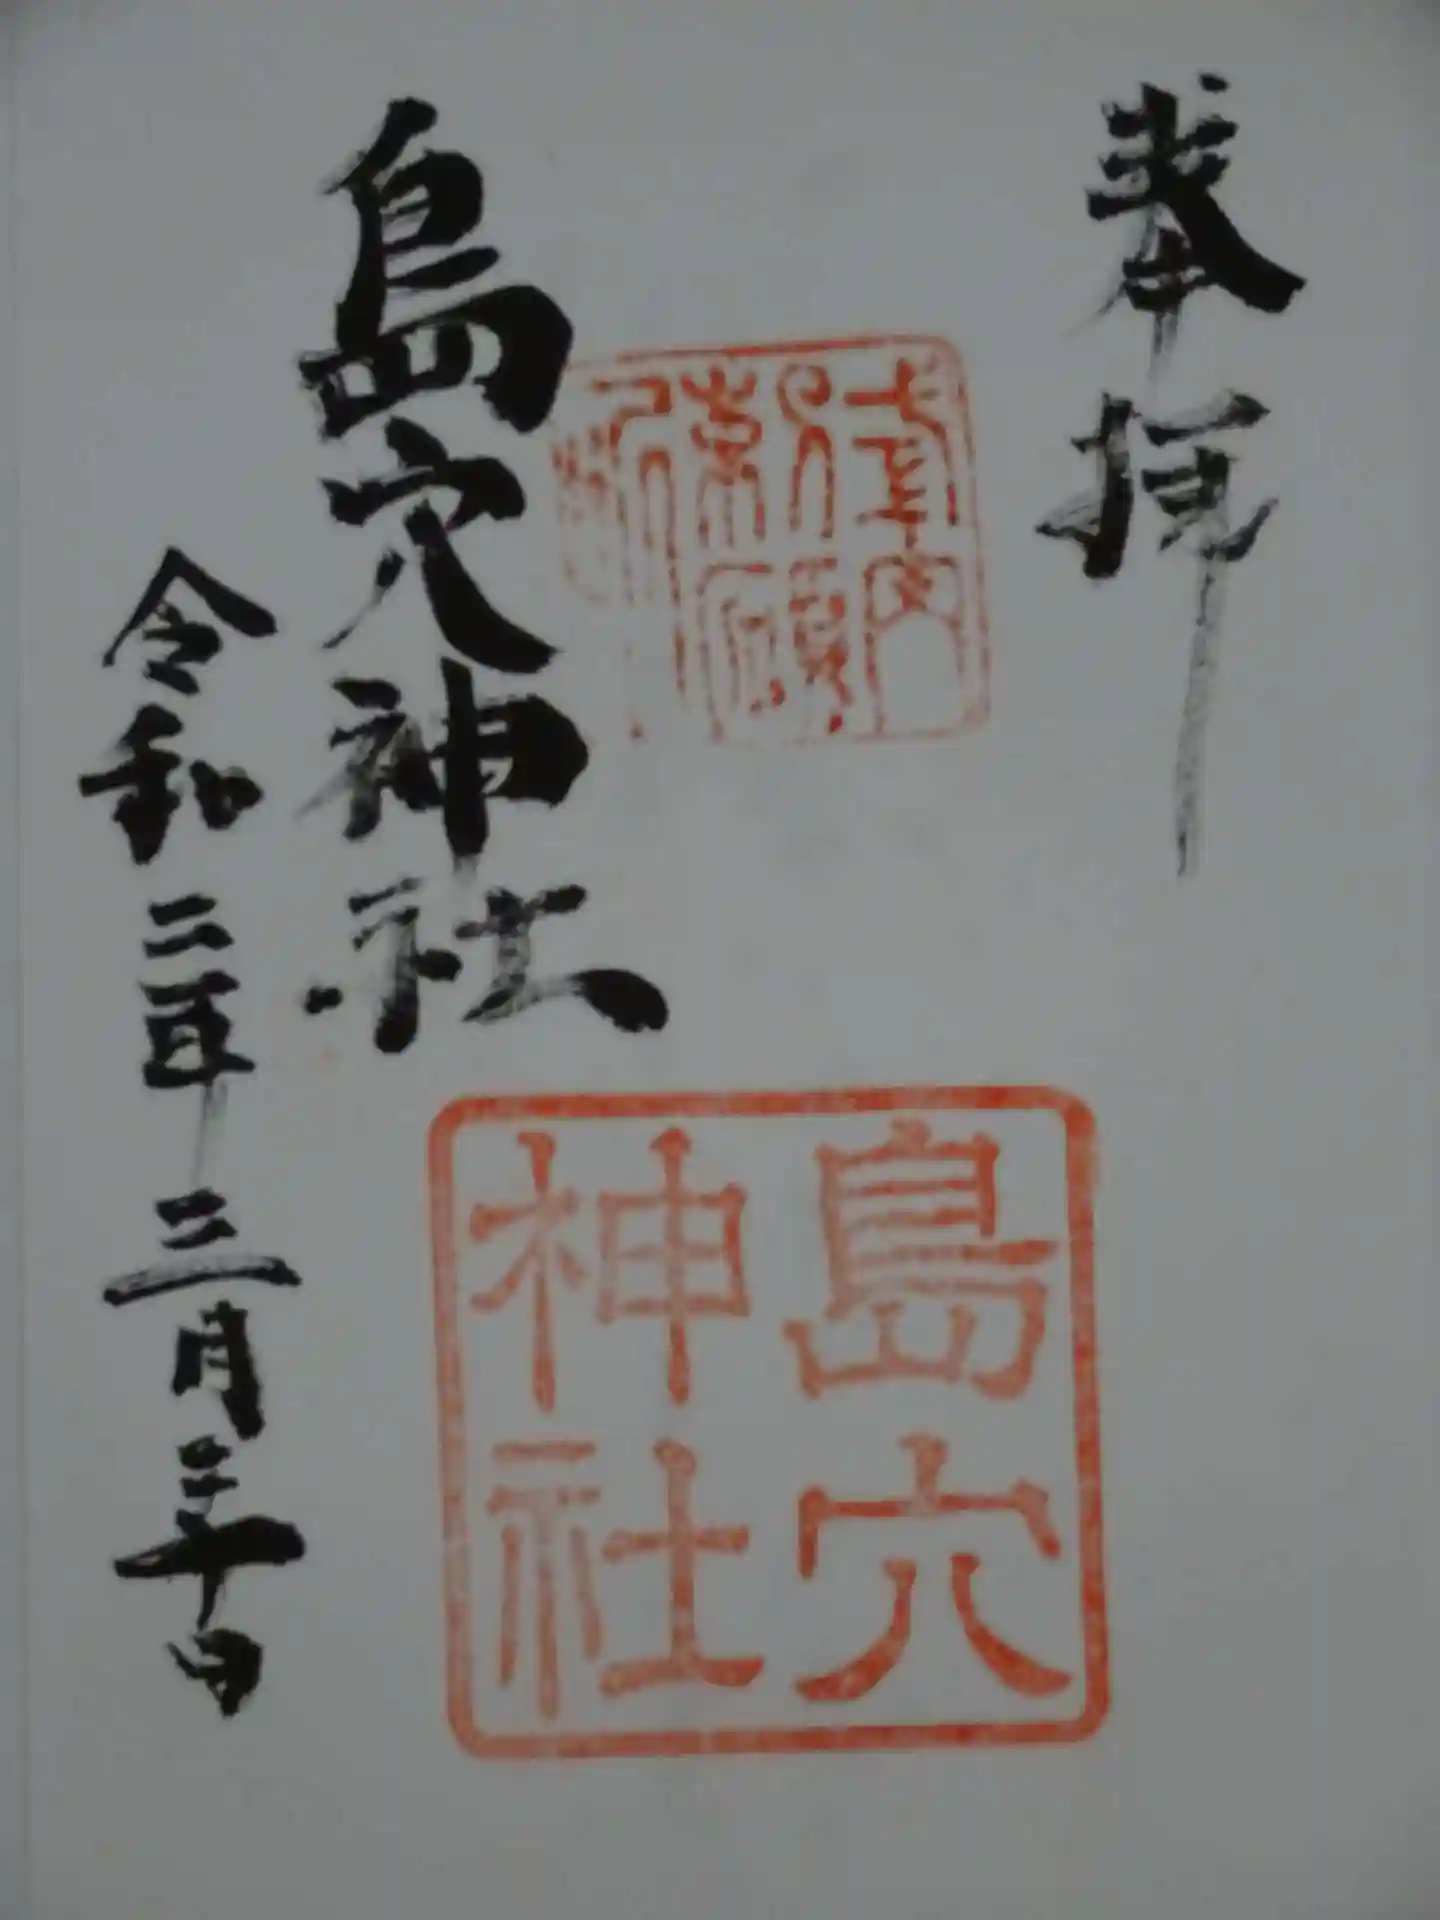 奉拝
島穴神社
令和二年三月三十日
島穴
神社